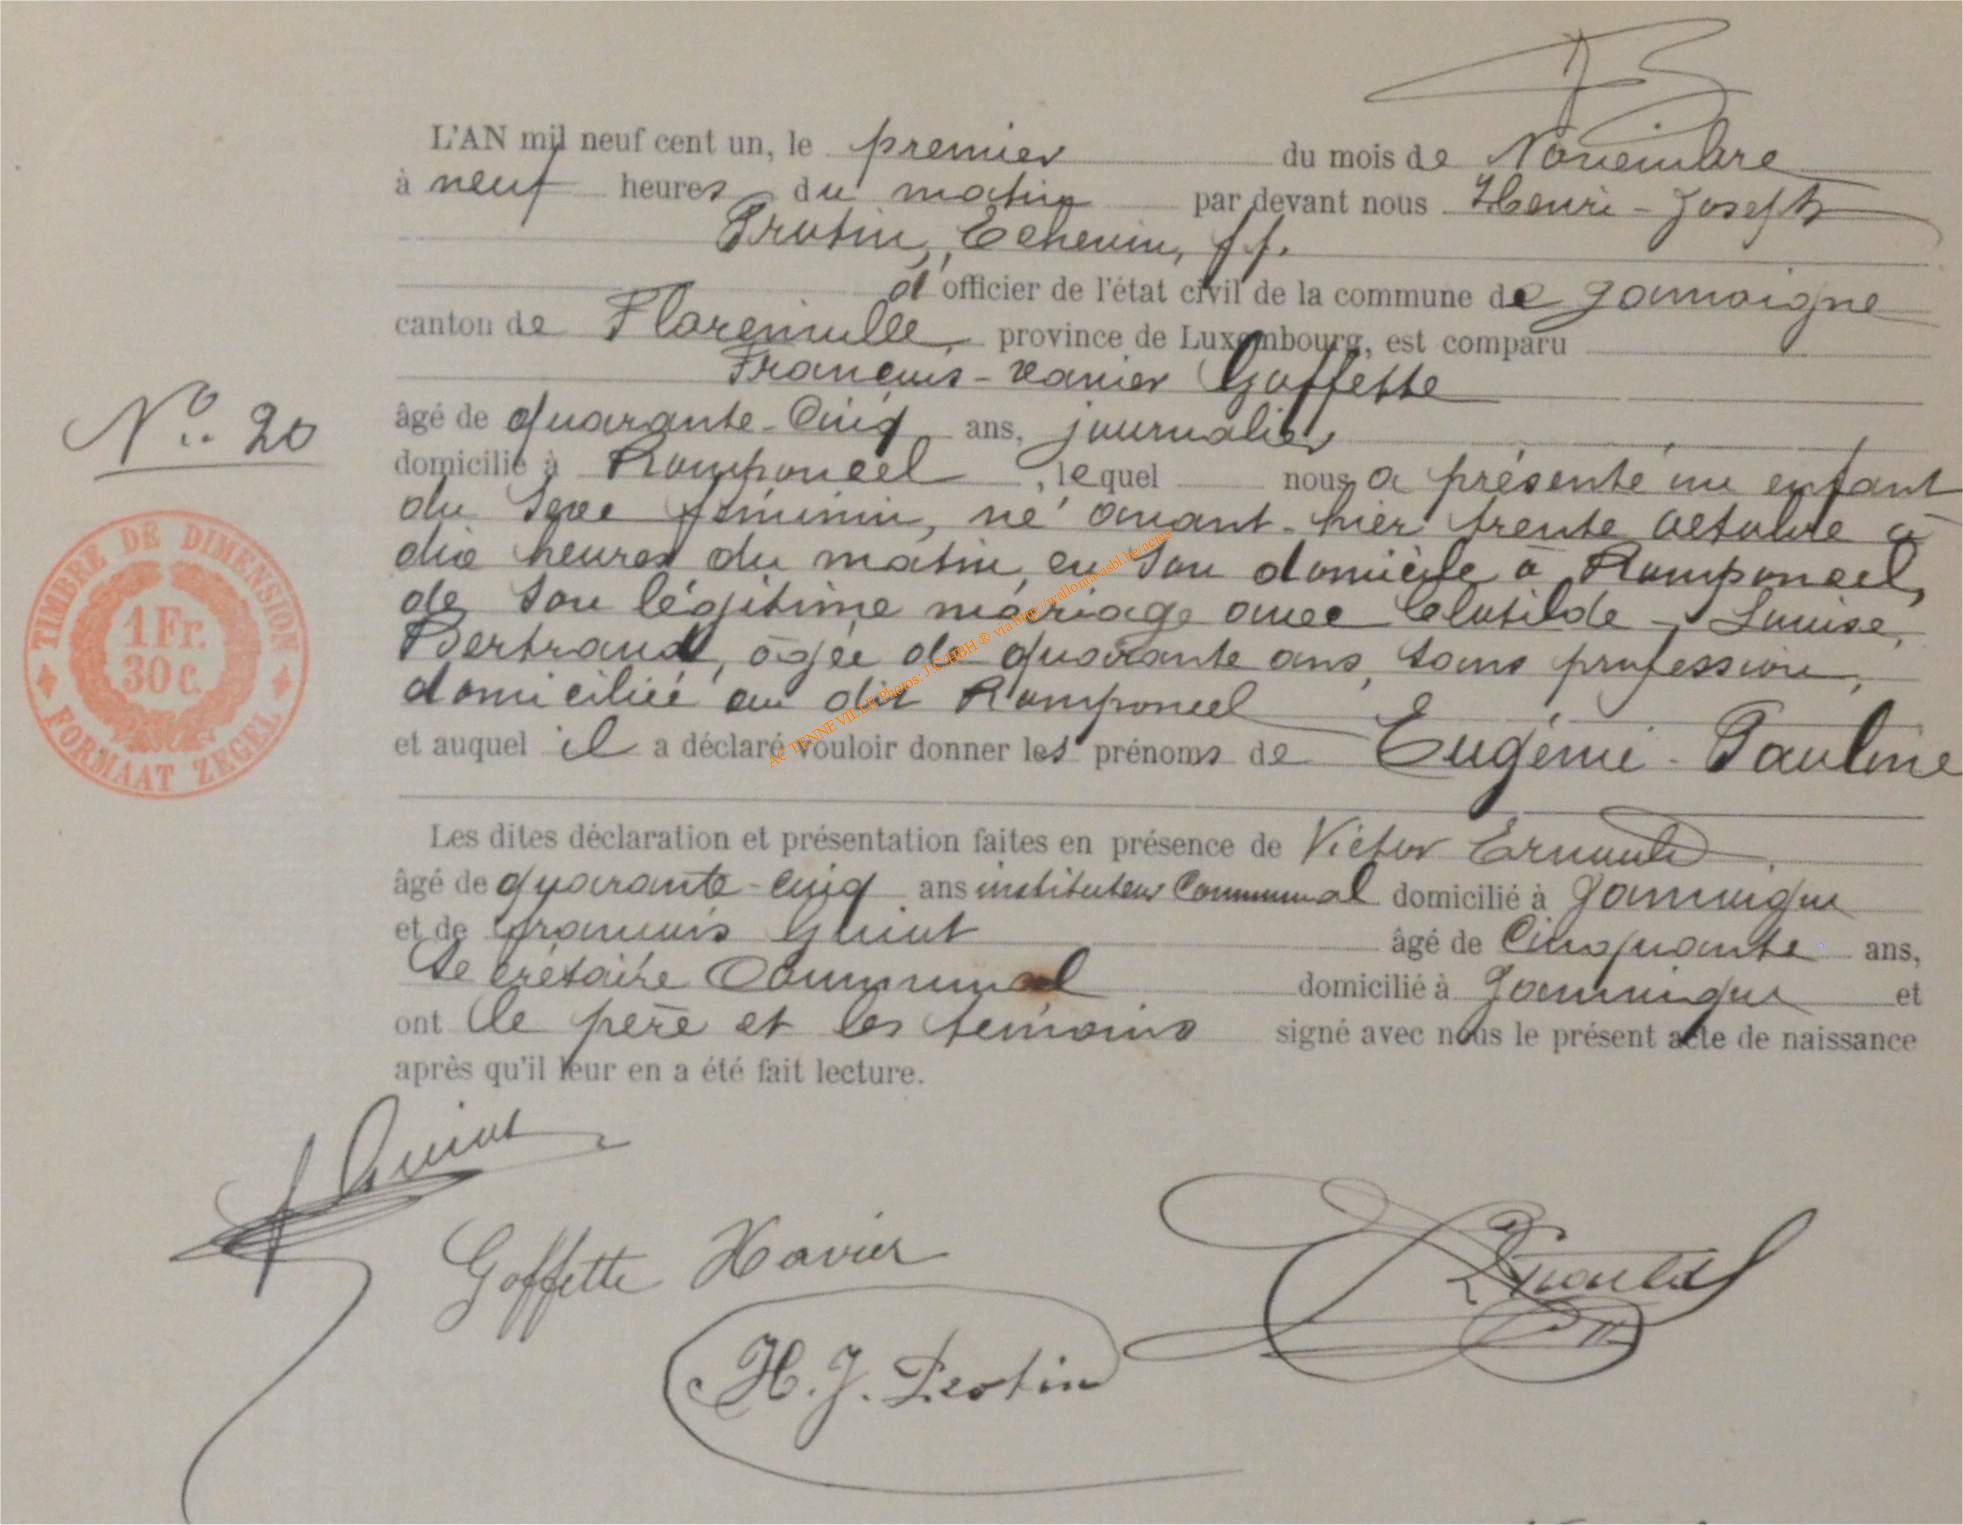 L'AN mil neuf cent un, le premier du mois de Novembre
à neuf heures du matin par devant nous Henri-Joseph
Protin, Echevin, ff.
d'officier de l'état civil de la commune de Jamoigne
canton de Florenville, province de Luxembourg, est comparu
François-Xavier Goffette
âgé de quarante-cinq ans, journalier
domicilié à Romponcel, lequel nous a présenté un enfant
du sexe féminin, né avant-hier trente octobre à
dix heures du matin, en son domicile à Romponcel,
de son légitime mariage avec Clotilde-Louise,
Bertrand, âgée de quarante ans, sans profession,
domiciliée au dit Romponcel
et auquel il a déclaré vouloir donner les prénoms de Eugénie-Pauline
N° 20
TIMBRE DE DIMENSION
1 Fr.
30 c.
FORMAAT ZEGEL
ACTENNEVILLE Photos: J.C. HBH ® via http://wallonia-asbl.be/actes
Les dites déclaration et présentation faites en présence de Victor Ernould
âgé de quarante-cinq ans instituteur Communal domicilié à Jamoigne
et de François Guiot âgé de Cinquante ans,
Secrétaire Communal domicilié à Jamoigne et
ont le père et les témoins signé avec nous le présent acte de naissance
après qu'il leur en a été fait lecture.
f Guiot
Goffette Xavier
Ernould
H. J. Protin